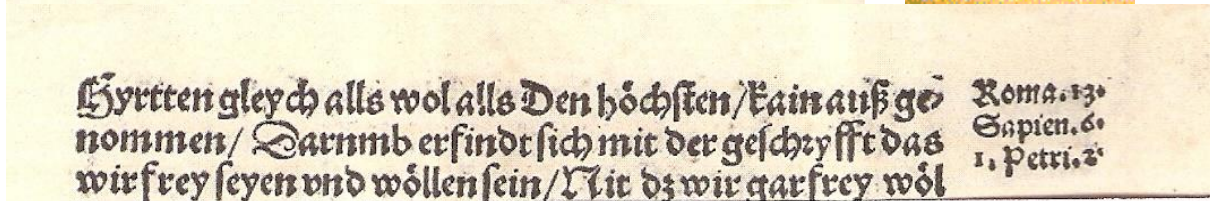 Hyrtten gleych alls wol alls Den höchsten/kain auß ge-
nommen/ Darumb erfindt sich mit der geschryfft das
wir frey seyen vnd wöllen sein/Nit dz wir gar frey wöl
Roma.13.
Sapien.6.
1. Petri.2